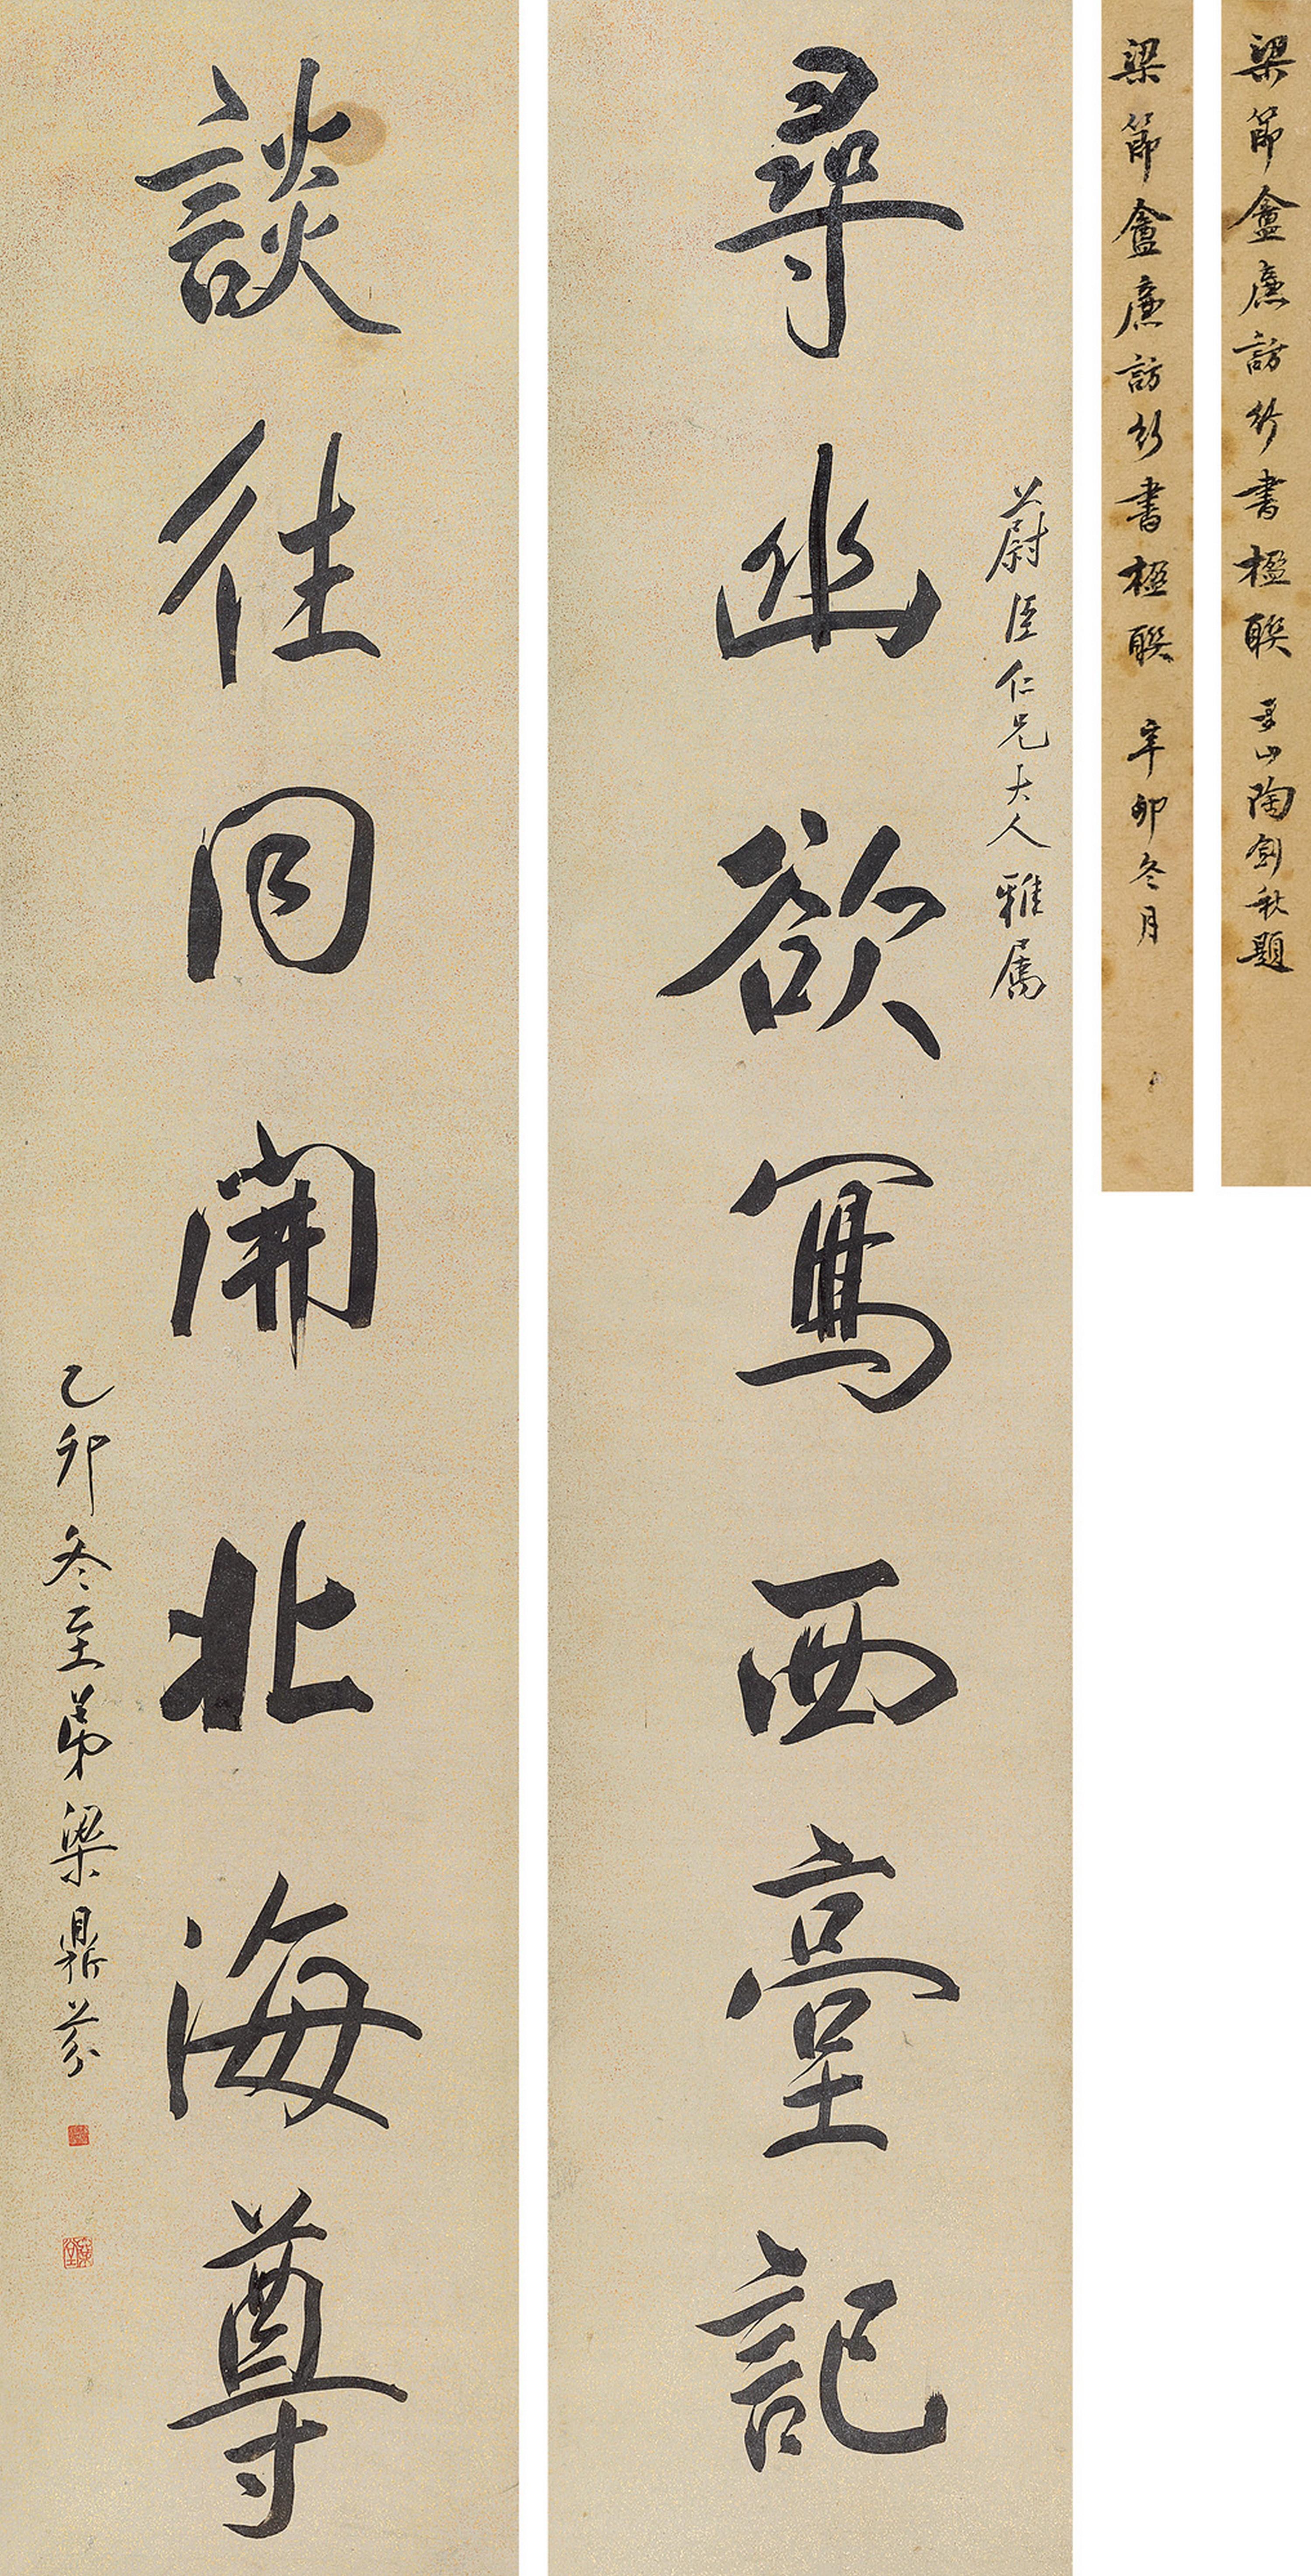 梁節盦廉訪行書楹聯 陶劍秋題
梁節盦廉訪行書楹聯 辛卯冬月
蔚臣仁兄大人雅屬
尋幽欲寫西臺記
談往同開北海尊
乙卯冬至弟梁鼎芬